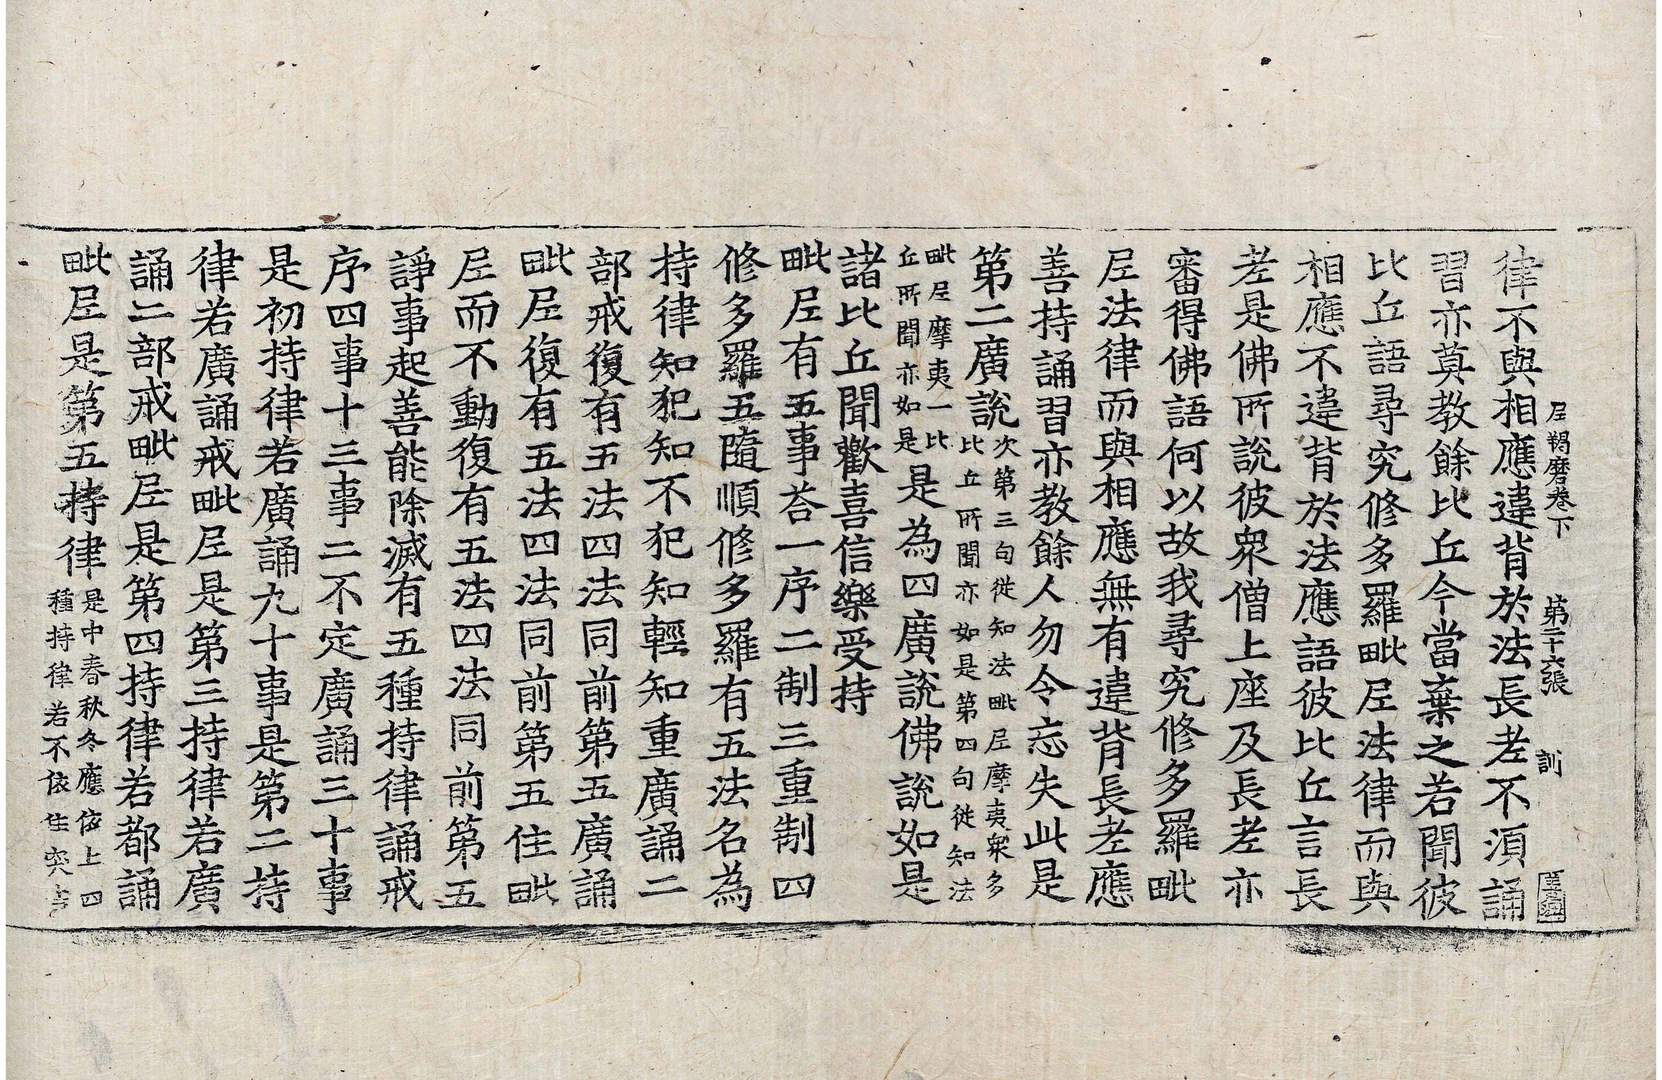 尼羯磨卷下 第二十六張 訓
律不與相應違背於法長老不須誦
習亦莫教餘比丘今當棄之若聞彼
比丘語尋究修多羅毗尼法律而與
相應不違背於法應語彼比丘言長
老是佛所說彼衆僧上座及長老亦
審得佛語何以故我尋究修多羅毗
尼法律而與相應無有違背長老應
善持誦習亦教餘人勿令忘失此是
第二廣說次第三句從知法毗尼摩夷衆多
比丘所聞亦如是第四句從知法
毗尼摩夷一比
丘所聞亦如是是為四廣說佛說如是
諸比丘聞歡喜信樂受持
毗尼有五事荅一序二制三重制四
修多羅五隨順修多羅有五法名為
持律知犯知不犯知輕知重廣誦二
部戒復有五法四法同前第五廣誦
毗尼復有五法四法同前第五住毗
尼而不動復有五法四法同前第五
諍事起善能除滅有五種持律誦戒
序四事十三事二不定廣誦三十事
是初持律若廣誦九十事是第二持
律若廣誦戒毗尼是第三持律若廣
誦二部戒毗尼是第四持律若都誦
毗尼是第五持律是中春秋冬應依上四
種持律若不依住突吉